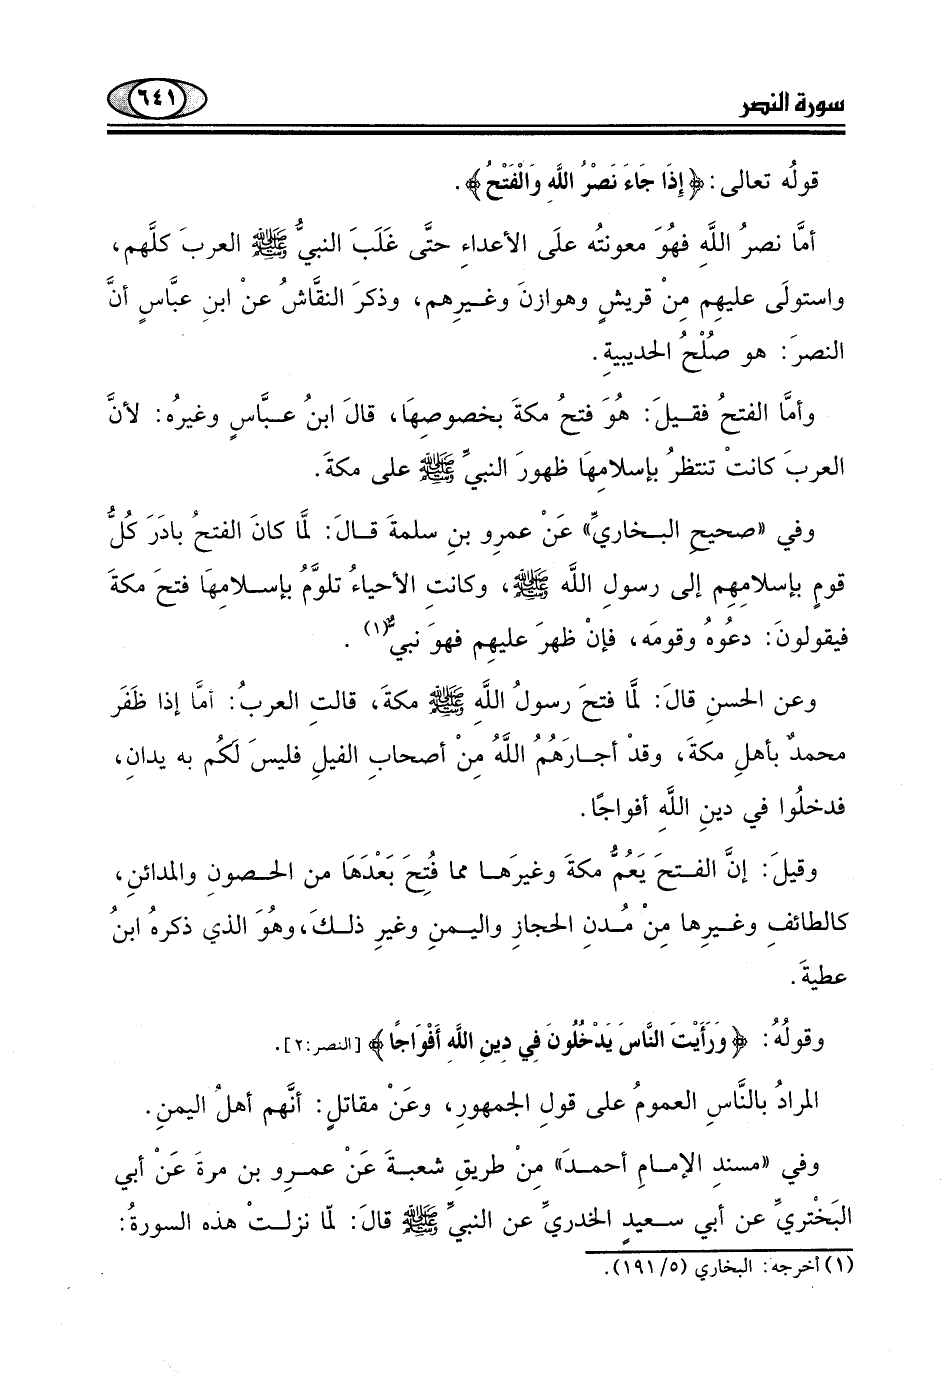 سورة النصر
٦٤١
قولُه تعالى: ﴿إِذَا جَاءَ نَصْرُ اللَّهِ وَالْفَتْحُ﴾.
أمَّا نصرُ اللَّهِ فهُوَ معونتُه علَى الأعداءِ حتَّى غَلَبَ النبيُّ ﷺ العربَ كلَّهم،
واستولَى عليهِم مِنْ قريشٍ وهوازنَ وغيرِهم، وذكرَ النقَّاشُ عنْ ابنِ عبَّاسٍ أنَّ
النصرَ: هو صُلْحُ الحديبيةِ.
وأمَّا الفتحُ فقيلَ: هُوَ فتحُ مكةَ بخصوصِهَا، قالَ ابنُ عبَّاسٍ وغيرُه: لأنَّ
العربَ كانتْ تنتظرُ بإسلامِهَا ظهورَ النبيِّ ﷺ على مكةَ.
وفي «صحيحِ البخاريِّ» عَنْ عمرِو بنِ سلمةَ قالَ: لمَّا كانَ الفتحُ بادَرَ كُلُّ
قومٍ بإسلامِهِم إلى رسولِ اللَّه ﷺ، وكانتِ الأحياءُ تلوَّمُ بإسلامِهَا فتحَ مكةَ
فيقولونَ: دعُوهُ وقومَه، فإنْ ظهرَ عليهِم فهوَ نبيٌّ(١).
وعن الحسنِ قالَ: لمَّا فتحَ رسولُ اللَّه ﷺ مكةَ، قالتِ العربُ: أمَّا إذا ظَفَر
محمدٌ بأهلِ مكةَ، وقدْ أجارَهُمُ اللَّهُ مِنْ أصحابِ الفيلِ فليسَ لَكُم به يدانِ،
فدخلُوا في دينِ اللَّهِ أفواجًا.
وقيلَ: إنَّ الفتحَ يَعُمُّ مكةَ وغيرَهَا مما فُتِحَ بَعْدَهَا من الحصونِ والمدائنِ،
كالطائفِ وغيرِها مِنْ مُدنِ الحجازِ واليمنِ وغيرِ ذلكَ، وهُوَ الذي ذكرهُ ابنُ
عطيةَ.
وقولُهُ: ﴿وَرَأَيْتَ النَّاسَ يَدْخُلُونَ فِي دِينِ اللَّهِ أَفْوَاجًا﴾ [النصر:٢].
المرادُ بالنَّاسِ العمومُ على قولِ الجمهورِ، وعَنْ مقاتلٍ: أنَّهم أهلُ اليمنِ.
وفي «مسندِ الإمامِ أحمدَ» مِنْ طريقِ شعبةَ عَنْ عمرِو بنِ مرةَ عَنْ أبي
البَخْتريِّ عن أبي سعيدٍ الخدريِّ عن النبيِّ ﷺ قالَ: لمّا نزلتْ هذه السورةُ:
(١) أخرجه: البخاري (٥/ ١٩١).